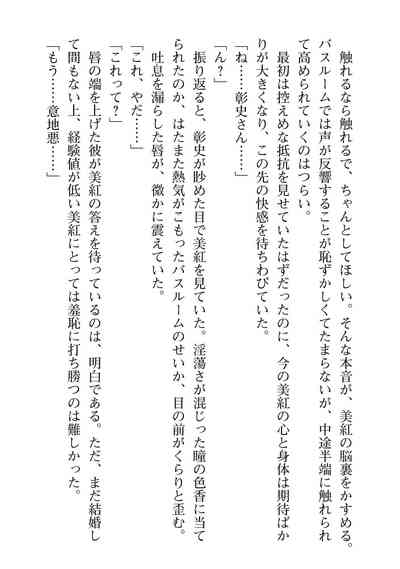 触れるなら触れるで、ちゃんとしてほしい。そんな本音が、美紅の脳裏をかすめる。
バスルームでは声が反響することが恥ずかしくてたまらないが、中途半端に触れられ
て高められていくのはつらい。
最初は控えめな抵抗を見せていたはずだったのに、今の美紅の心と身体は期待ばか
りが大きくなり、この先の快感を待ちわびていた。
「ね……彰史さん……」
「ん？」
振り返ると、彰史が眇めた目で美紅を見ていた。淫蕩さが混じった瞳の色香に当て
られたのか、はたまた熱気がこもったバスルームのせいか、目の前がくらりと歪む。
吐息を漏らした唇が、微かに震えていた。
「これ、やだ……」
「これって？」
唇の端を上げた彼が美紅の答えを待っているのは、明白である。ただ、まだ結婚し
て間もない上、経験値が低い美紅にとっては羞恥に打ち勝つのは難しかった。
「もう……意地悪……」